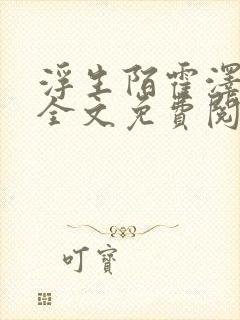 浮生陌霍澤
全文免費閱
叮寶